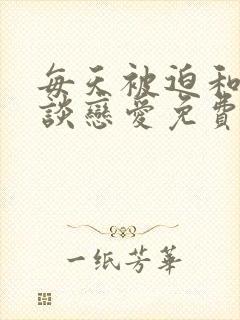 每天被迫和
談戀愛免費
一纸芳華